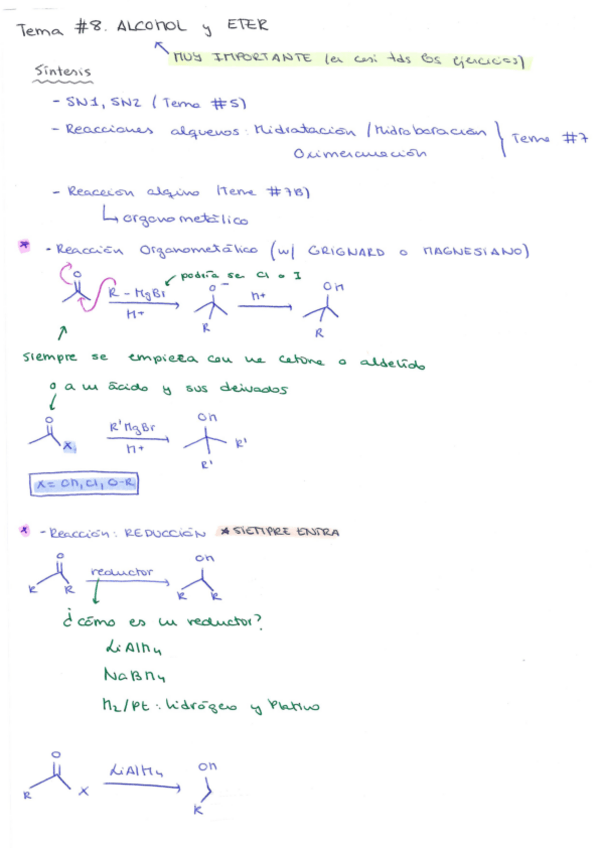 Tema #8. ALCOHOL y ETER
MUY IMPORTANTE (en casi tds los ejercicios)
Síntesis
- SN1, SN2 (Tema #5)
- Reacciones alquenos: Hidratación / Hidroboración
Oximercuriación
Tema #7
- Reacción alquino (Tema #7B)
↳ organometálico
* - Reacción Organometálico (w/ GRIGNARD o MAGNESIANO)
podría se Cl o I
O R - MgBr H+ O⁻ R H+ OH R
siempre se empieza con una cetona o aldehído
o a un ácido y sus deivados
O X R'MgBr H+ OH R' R'
X = OH, Cl, O-R
* - Reacción: REDUCCIÓN * SIEMPRE ENTRA
O R R reductor OH R R
¿cómo es un reductor?
LiAlH4
NaBH4
H2/Pt: hidrógeno y Platino
O R X LiAlH4 OH R